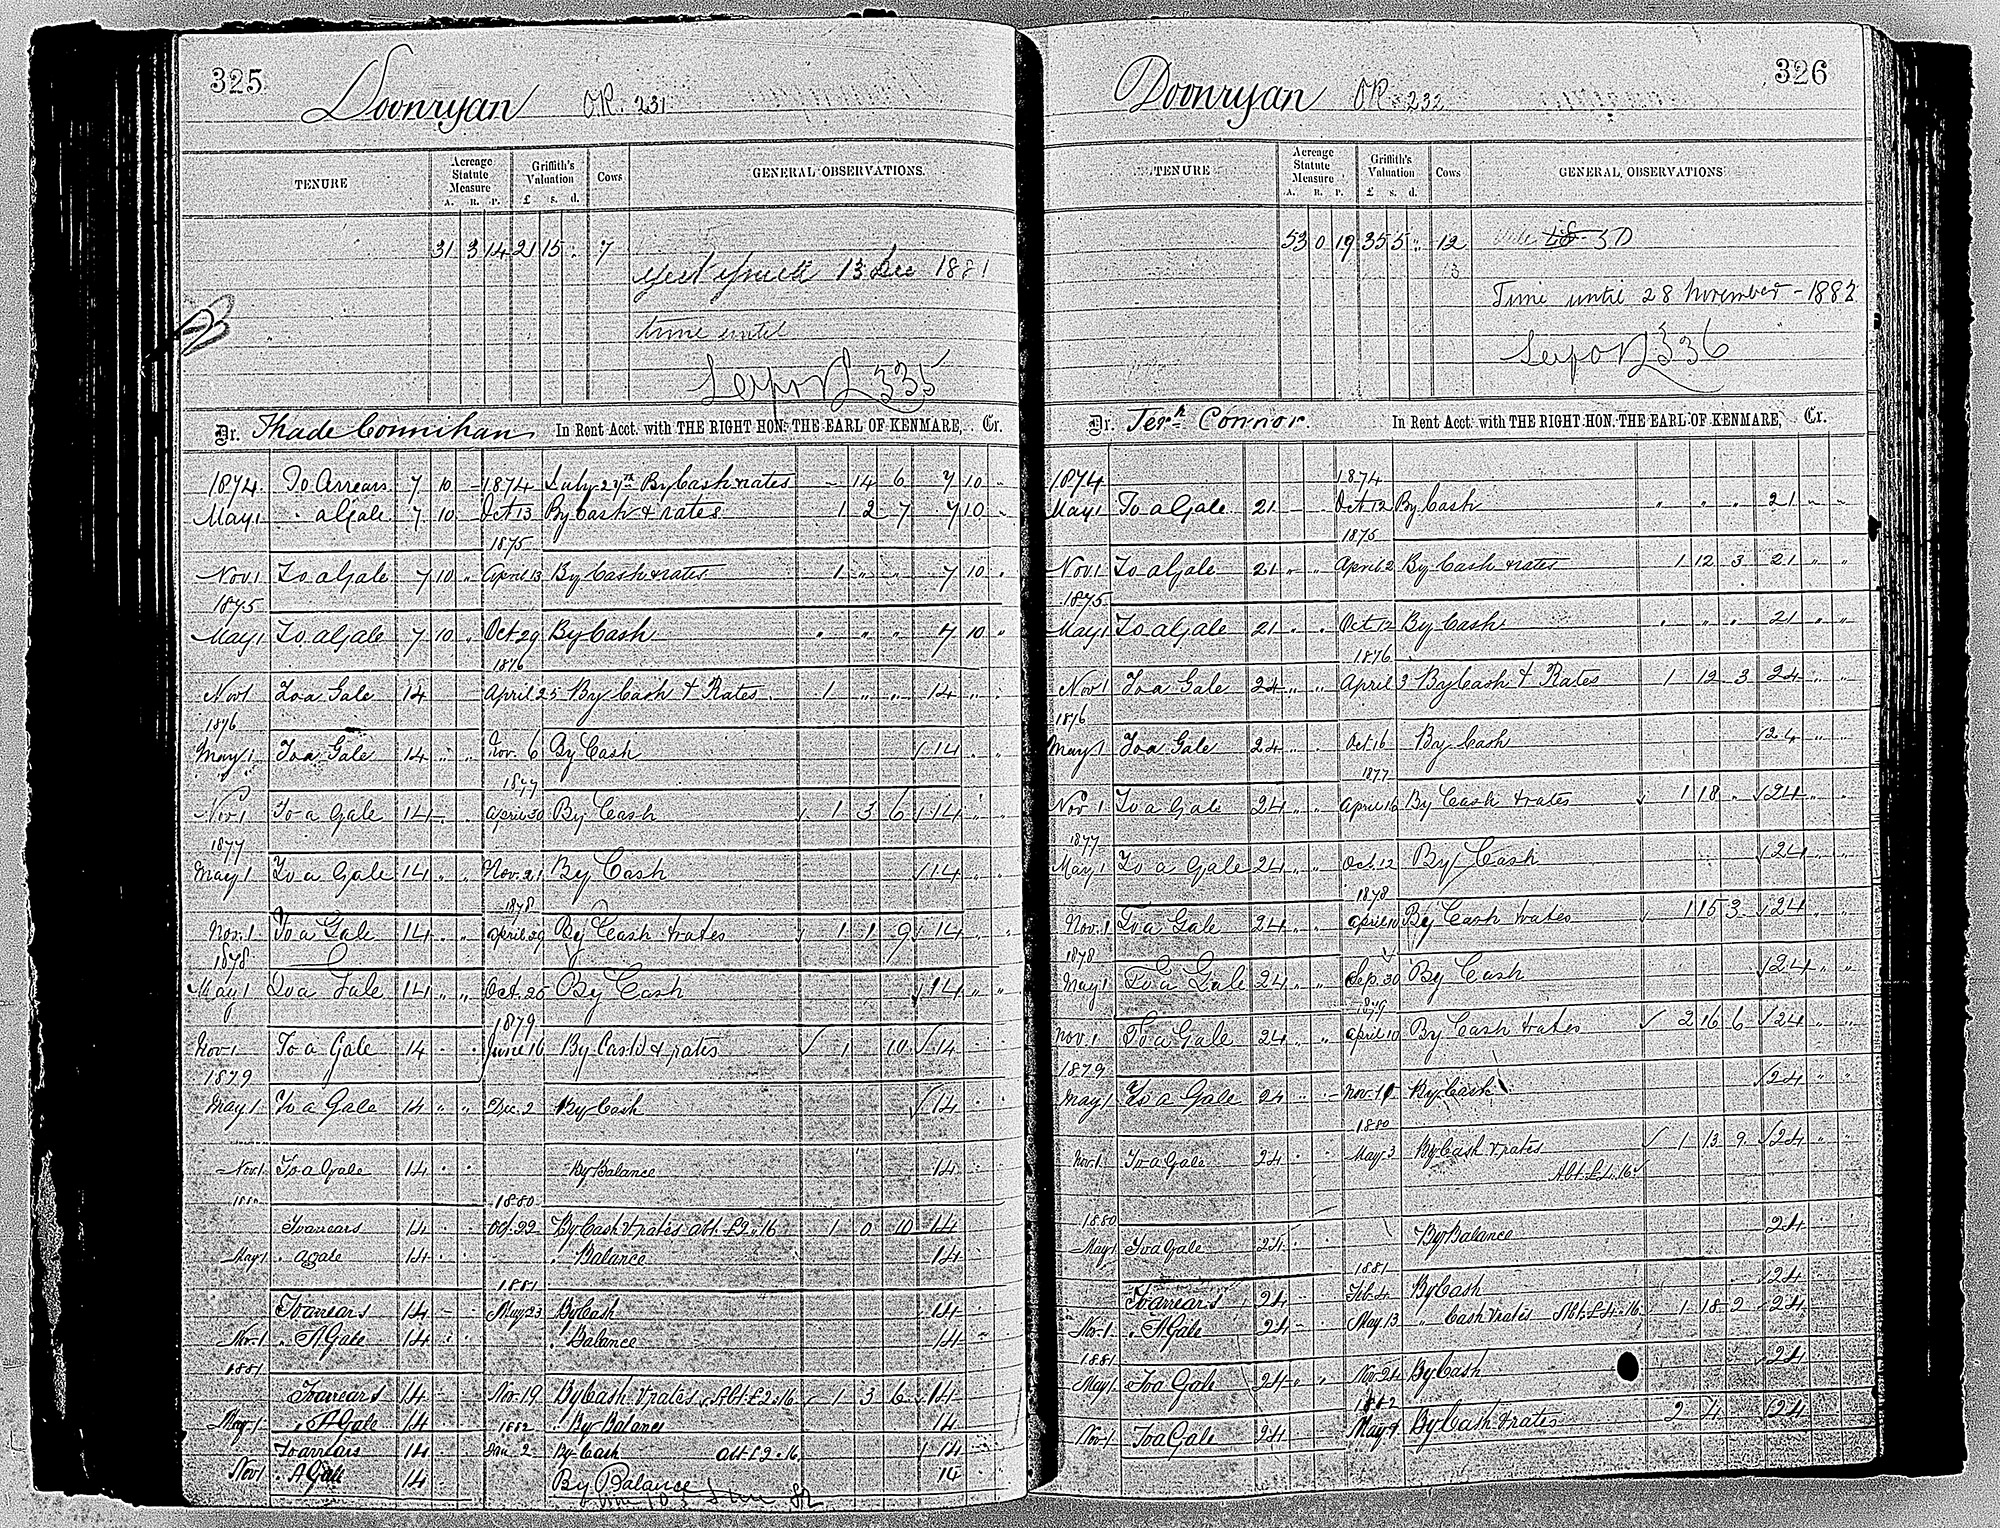 325
Doonryan OR. 231
TENURE Acreage Statute Measure A. R. P. Griffith's Valuation £ s. d. Cows GENERAL OBSERVATIONS.
31 3 14 21 15 . 7
13 Dec 1881
time until
L 335
Dr. Thade Connihan In Rent Acct. with THE RIGHT HON. THE EARL OF KENMARE, Cr.
1874 To Arrears 7 10 - 1874 July 27th By Cash & rates - 14 6 7 10 "
May 1 " a Gale 7 10 Oct 13 By Cash & rates 1 2 7 7 10
1875
Nov. 1 To a Gale 7 10 " April 13 By Cash & rates 1 " " 7 10 "
1875
May 1 To a Gale 7 10 " Oct. 29 By Cash " " " 7 10 "
1876
Nov 1 To a Gale 14 April 25 By Cash & Rates. 1 " " 14 " "
1876
May 1 To a Gale 14 " " Nov. 6 By Cash √ 14 " "
1877
Nov 1 To a Gale 14 " April 30 By Cash √ 1 3 6 √ 14 " "
1877
May 1 To a Gale 14 " " Nov. 21 By Cash √ 14 " "
1878
Nov. 1 To a Gale 14 " " April 29 By Cash & rates √ 1 1 9 √ 14 " "
1878
May 1 To a Gale 14 " " Oct. 26 By Cash √ 14 " "
1879
Nov. 1 To a Gale 14 " " June 16 By Cash & rates √ 1 10 √ 14 " "
1879
May 1 To a Gale 14 " " Dec. 2 By Cash √ 14 " "
Nov. 1 To a Gale 14 " " By Balance 14 " "
1880 1880
To arrears 14 " " Oct. 22 By Cash & rates abt. £2.16 1 0 10 14
May 1 " a Gale 14 " " " Balance 14
1881
To arrears 14 - - May 23 By Cash 14 "
Nov. 1 " A Gale 14 " " " Balance 14 "
1881
To arrears 14 - " Nov. 19 By Cash & rates Abt. £2.16 √ 1 3 6 √ 14
May 1 " A Gale 14 1882 " By Balance 14
To arrears 14 " Jan. 2 By Cash abt. £2.16. √ 14
Nov 1 " A Gale 14 " By Balance 14
326
Doonryan OR 232
TENURE Acreage Statute Measure A. R. P. Griffith's Valuation £ s. d. Cows GENERAL OBSERVATIONS
53 0 19 35 5 " 12
13
Time until 28 November - 1882
L 336
Dr. Jerh Connor. In Rent Acct. with THE RIGHT HON. THE EARL OF KENMARE, Cr.
1874 1874
May 1 To a Gale 21 - - Oct 12 By Cash " " " 21 " "
1875
Nov. 1 To a Gale 21 " " April 2 By Cash & rates 1 12 3 21 " "
1875
May 1 To a Gale 21 " " Oct 12 By Cash " " " 21 " "
1876
Nov 1 To a Gale 24 " " April 3 By Cash & Rates 1 12 3 24 " "
1876
May 1 To a Gale 24 " " Oct 16 By Cash √ 24 " "
1877
Nov 1 To a Gale 24 " " April 16 By Cash & rates √ 1 18 " √ 24 " "
1877
May 1 To a Gale 24 " " Oct. 12 By Cash √ 24 " "
1878
Nov. 1 To a Gale 24 " " April 10 By Cash & rates √ 1 15 3 √ 24 " "
1878
May 1 To a Gale 24 " " Sep. 30 By Cash √ 24 " "
1879
Nov. 1 To a Gale 24 " " April 10 By Cash & rates √ 2 16 6 √ 24 " "
1879
May 1 To a Gale 24 " - Nov. 11 By Cash √ 24 " "
1880
Nov. 1 To a Gale 24 " " May 3 By Cash & rates √ 1 13 9 √ 24 " "
1880
May 1 To a Gale 24 " By Balance 24 " "
1881
To arrears 24 - " Feb. 4 By Cash 24
Nov. 1 " A Gale 24 - " May 13 " Cash & rates Abt. £4.16. 1 18 2 - 24
1881
May 1 To a Gale 24 " " Nov. 24 By Cash 24
1882
Nov 1 To a Gale 24 May 9 By Cash & rates 2 4 √ 24